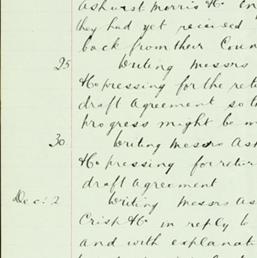 Ashurst Morris &c. in
they had yet received
back from their Coun
25 Writing Messrs
&c pressing for the ret
draft Agreement so t
progress might be m
30 Writing Messrs Ash
&c pressing for retur
draft Agreement
Dec: 2 Writing Messrs As
Crisp &c in reply to
and with explanat